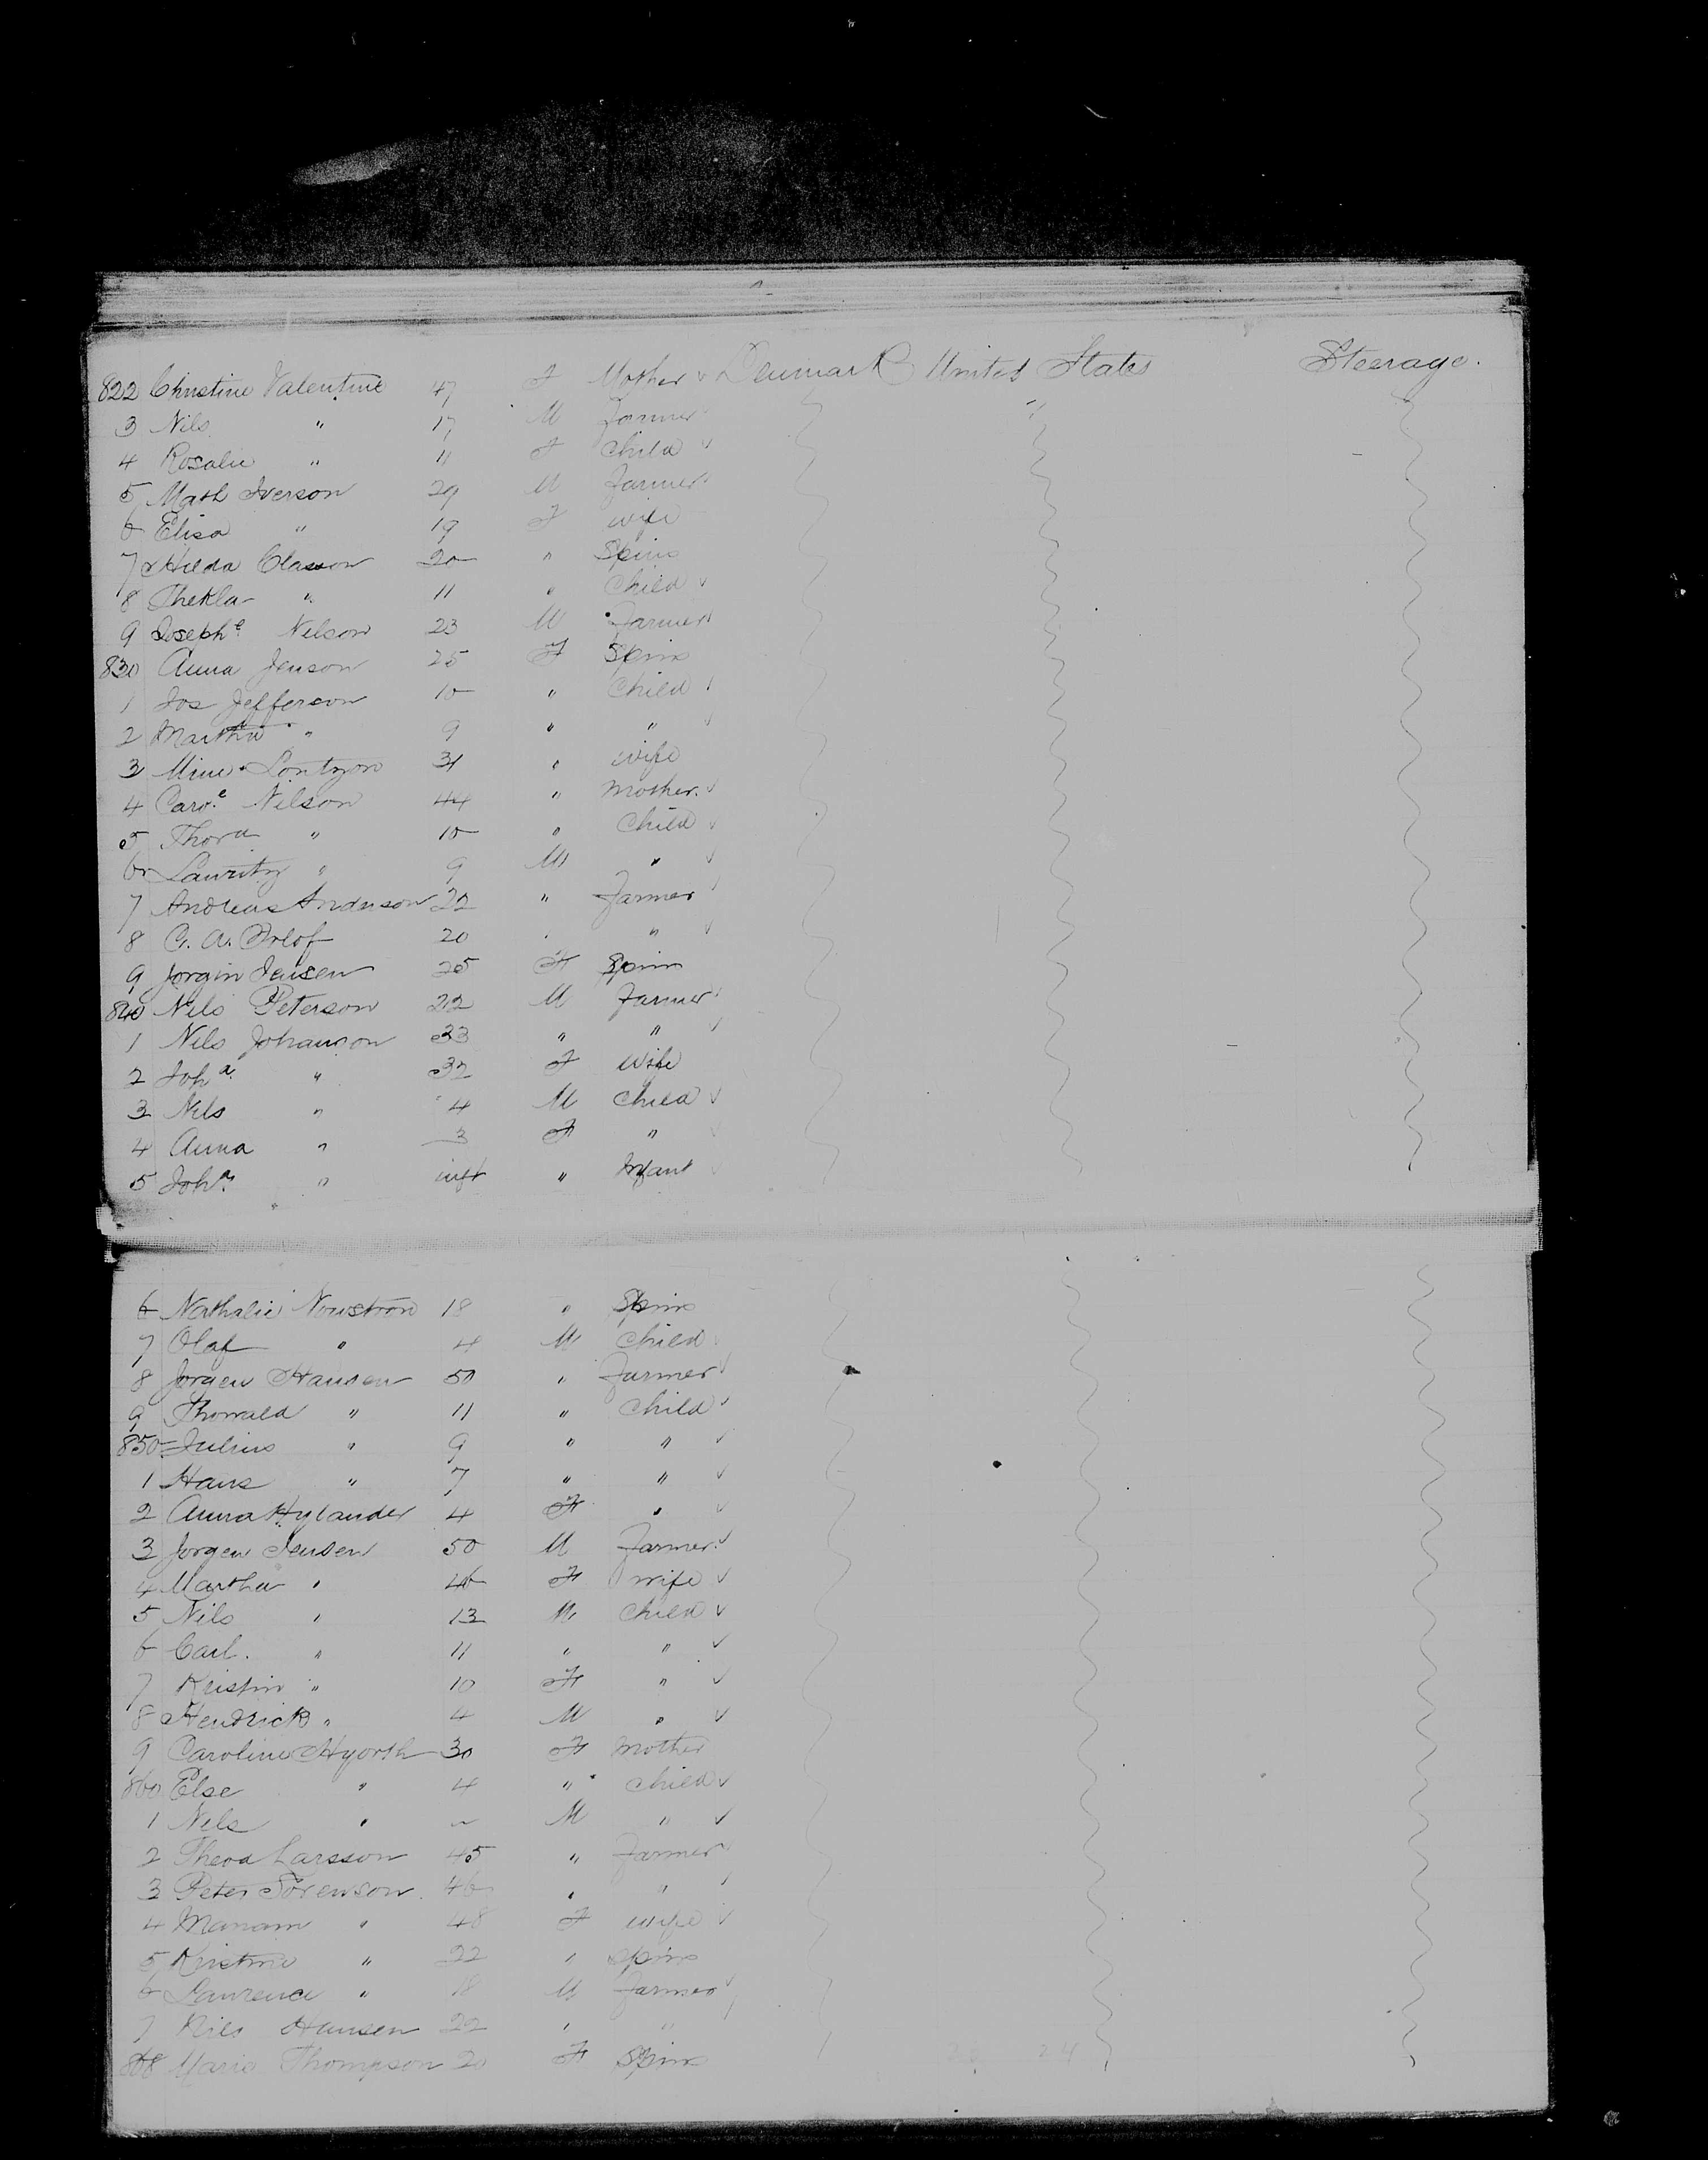 822 Christine Valentine 47 F Mother Denmark United States Steerage.
3 Nils " 17 M Farmer "
4 Rosalie " 11 F Child
5 Math Iverson 29 M Farmer
6 Elisa " 19 F wife
7 Hilda Classon 20 " Spins
8 Thekla " 11 " Child
9 Joseph.e Nelson 23 M Farmer
830 Anna Jenson 25 F Spins
1 Jos Jefferson 10 " Child
2 Martha " 9 " "
3 Mine Lontzon 31 " wife
4 Caro.e Nilson 44 " Mother.
5 Thora " 10 " Child
6 Lauritz " 9 M "
7 Andreas Anderson 22 " Farmer
8 C. A. Orlof 20 " "
9 Jorgin Jensen 25 F Spins
840 Nils Peterson 22 M Farmer
1 Nils Johanson 33 " "
2 Joh.a " 32 F wife
3 Nils " 4 M Child
4 Anna " 3 F "
5 Joh.a " inft " Infant
6 Nathalie Nowstron 18 " Spins
7 Olaf " 4 M Child
8 Jorgen Hansen 50 " Farmer
9 Thorvald " 11 " Child
850 Julius " 9 " "
1 Hans " 7 " "
2 Anna Hylander 4 F "
3 Jorgen Jensen 50 M Farmer
4 Martha " 46 F wife
5 Nils " 13 M Child
6 Carl. " 11 " "
7 Kristin " 10 F "
8 Hendrick " 4 M "
9 Caroline Hyorth 30 F Mother
860 Else " 4 " Child
1 Nels " " M "
2 Theod Larsson 45 " Farmer
3 Peter Sorenson 46 " "
4 Mariam " 48 F wife
5 Kristine " 22 " Spins
6 Laurence " 18 M Farmer
7 Nils Hansen 22 " "
868 Maria Thompson 20 F Spins